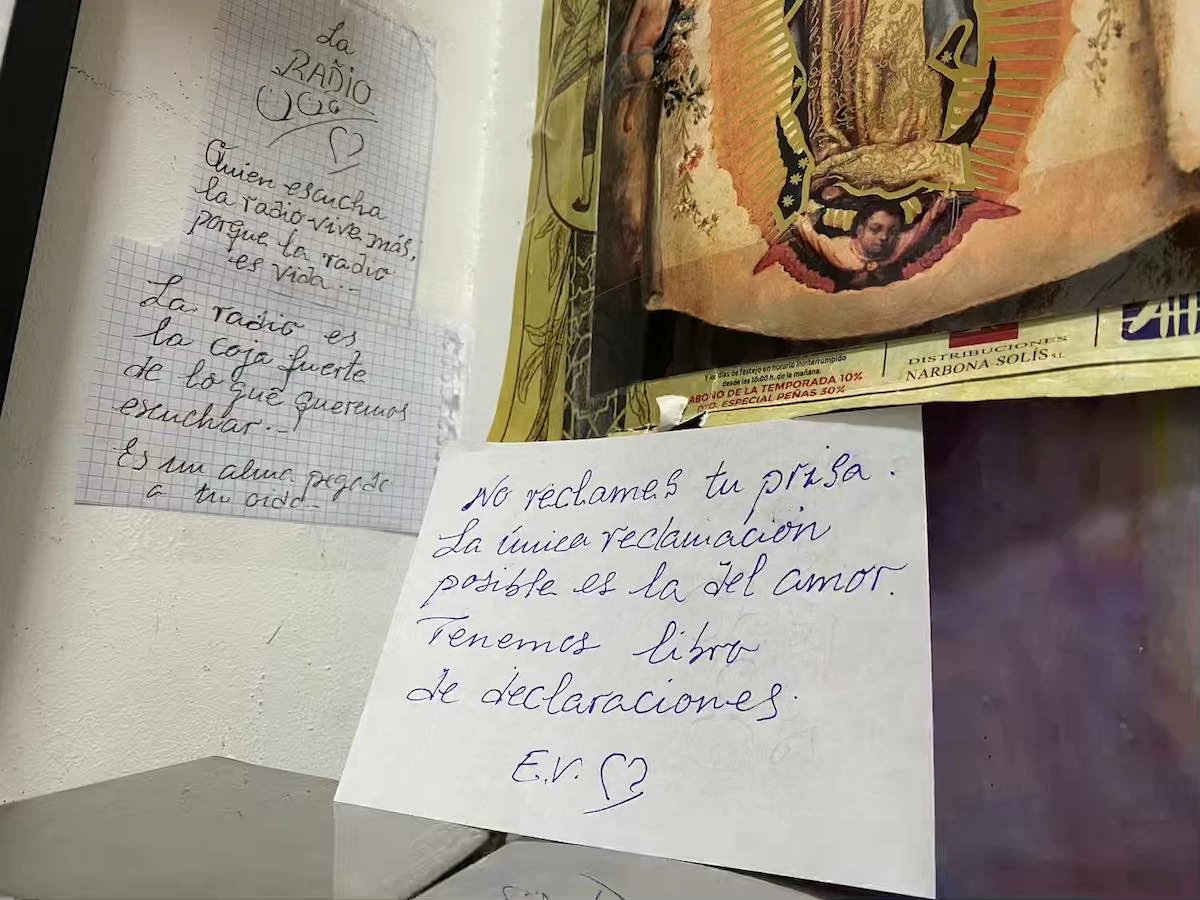 La
RADIO
Quien escucha
la radio vive más,
porque la radio
es vida...
La radio es
la caja fuerte
de lo que queremos
escuchar...
Es un alma pegada
a tu oido...
Y los días de festejo en horario ininterrumpido
desde las 10:00 h. de la mañana.
ABONO DE LA TEMPORADA 10%
DTO. ESPECIAL PEÑAS 30%
DISTRIBUCIONES
NARBONA SOLÍS S.L.
No reclames tu prisa.
La única reclamación
posible es la del amor.
Tenemos libro
de declaraciones.
E.V.